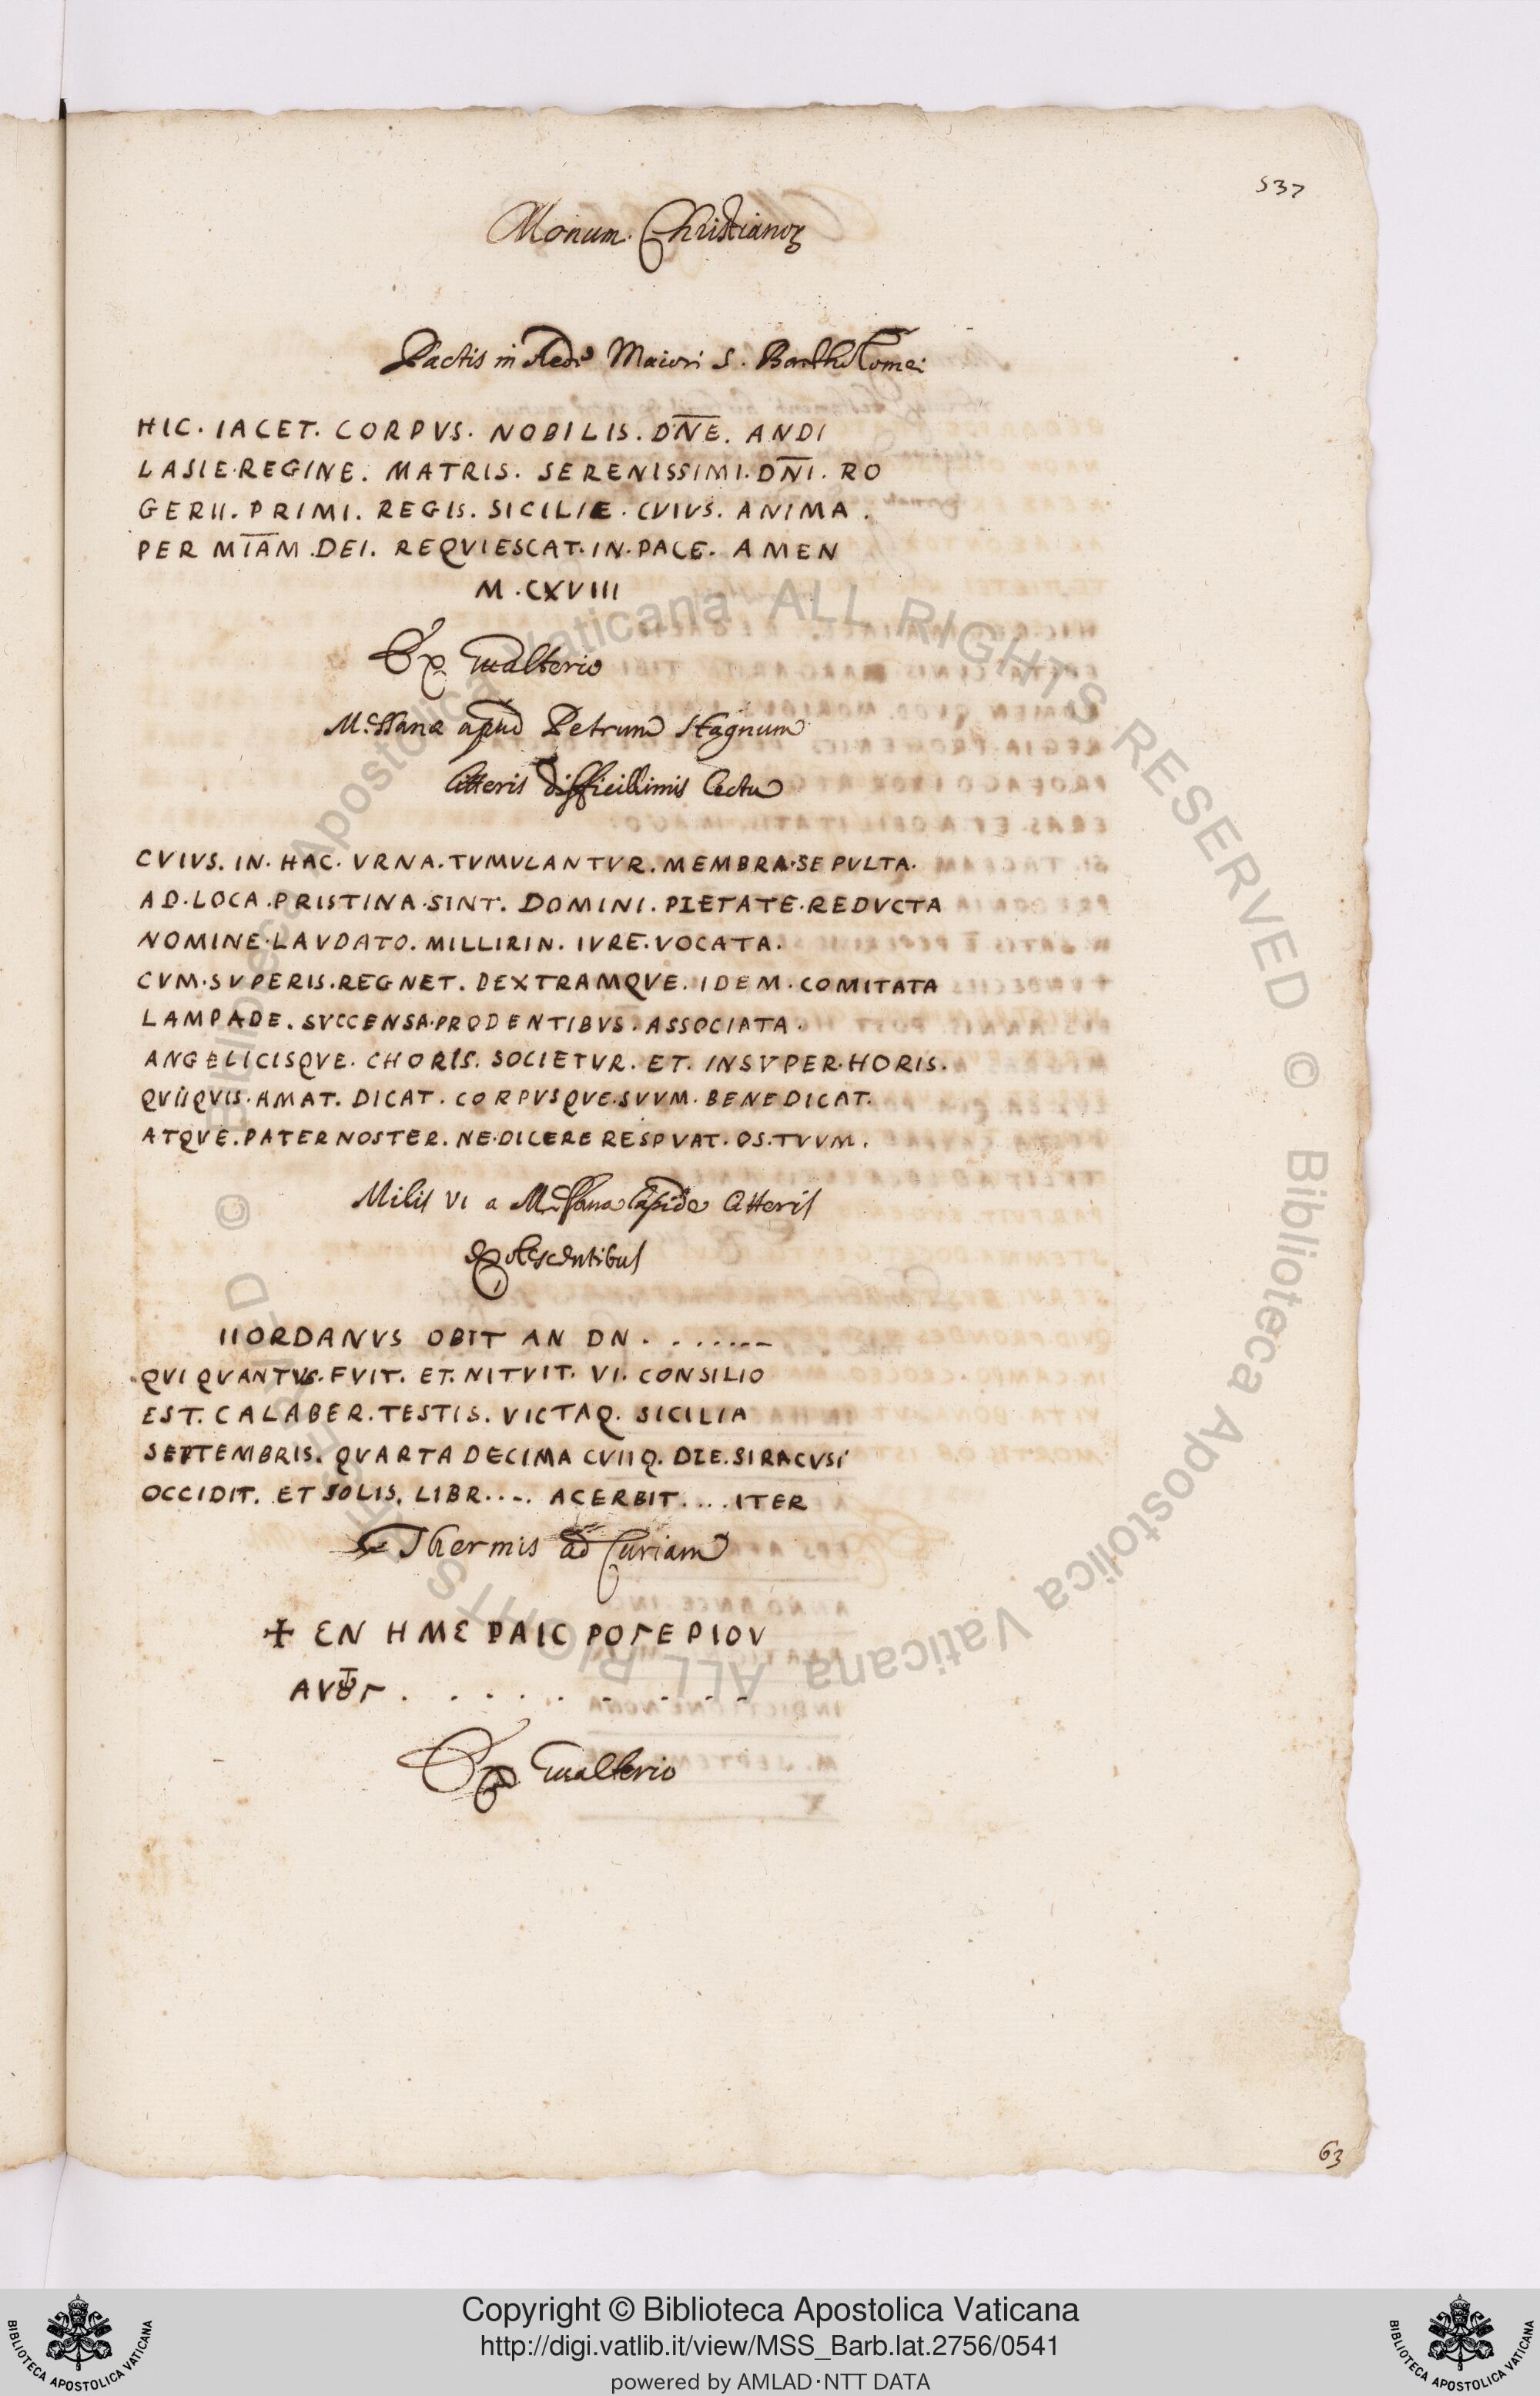 537
Monum. Christianoꝝ
Pactis in Aede Maiori S. Bartholomei
HIC. IACET. CORPVS. NOBILIS. DN̅E. ANDI
LASIE. REGINE. MATRIS. SERENISSIMI. DN̅I. RO
GERII. PRIMI. REGIS. SICILIE. CVIVS. ANIMA.
PER MI̅AM. DEI. REQVIESCAT. IN. PACE. AMEN
M. CXVIII
Ex Gualterio
Messanae apud Petrum Stagnum
litteris difficillimis lectu
CVIVS. IN. HAC. VRNA. TVMVLANTVR. MEMBRA. SEPVLTA.
AD. LOCA. PRISTINA. SINT. DOMINI. PIETATE. REDVCTA
NOMINE. LAVDATO. MILLIRIN. IVRE. VOCATA.
CVM. SVPERIS. REGNET. DEXTRAMQVE. IDEM. COMITATA
LAMPADE. SVCCENSA. PRODENTIBVS. ASSOCIATA.
ANGELICISQVE. CHORIS. SOCIETVR. ET. INSVPER. HORIS.
QVIIQVIS. AMAT. DICAT. CORPVSQVE. SVVM. BENEDICAT.
ATQVE. PATER NOSTER. NE. DICERE RESPVAT. OS. TVVM.
Milis VI a Messana lapide litteris
exescentibus
IIORDANVS OBIT AN DN . . . . . . .
QVI QVANTVS. FVIT. ET. NITVIT. VI. CONSILIO
EST. CALABER. TESTIS. VICTAQ. SICILIA
SEPTEMBRIS. QVARTA DECIMA CVIIQ. DIE. SIRACVSI
OCCIDIT. ET SOLIS. LIBR..... ACERBIT.... ITER
Thermis ad Curiam
✠ ΕΝ ΗΜΕΡΑΙC ΡΟΓΕΡΙΟV
Ex Gualterio
63
Copyright © Biblioteca Apostolica Vaticana
http://digi.vatlib.it/view/MSS_Barb.lat.2756/0541
powered by AMLAD·NTT DATA
BIBLIOTECA APOSTOLICA VATICANA
BIBLIOTECA APOSTOLICA VATICANA
© Biblioteca Apostolica Vaticana ALL RIGHTS RESERVED
© Biblioteca Apostolica Vaticana ALL RIGHTS RESERVED